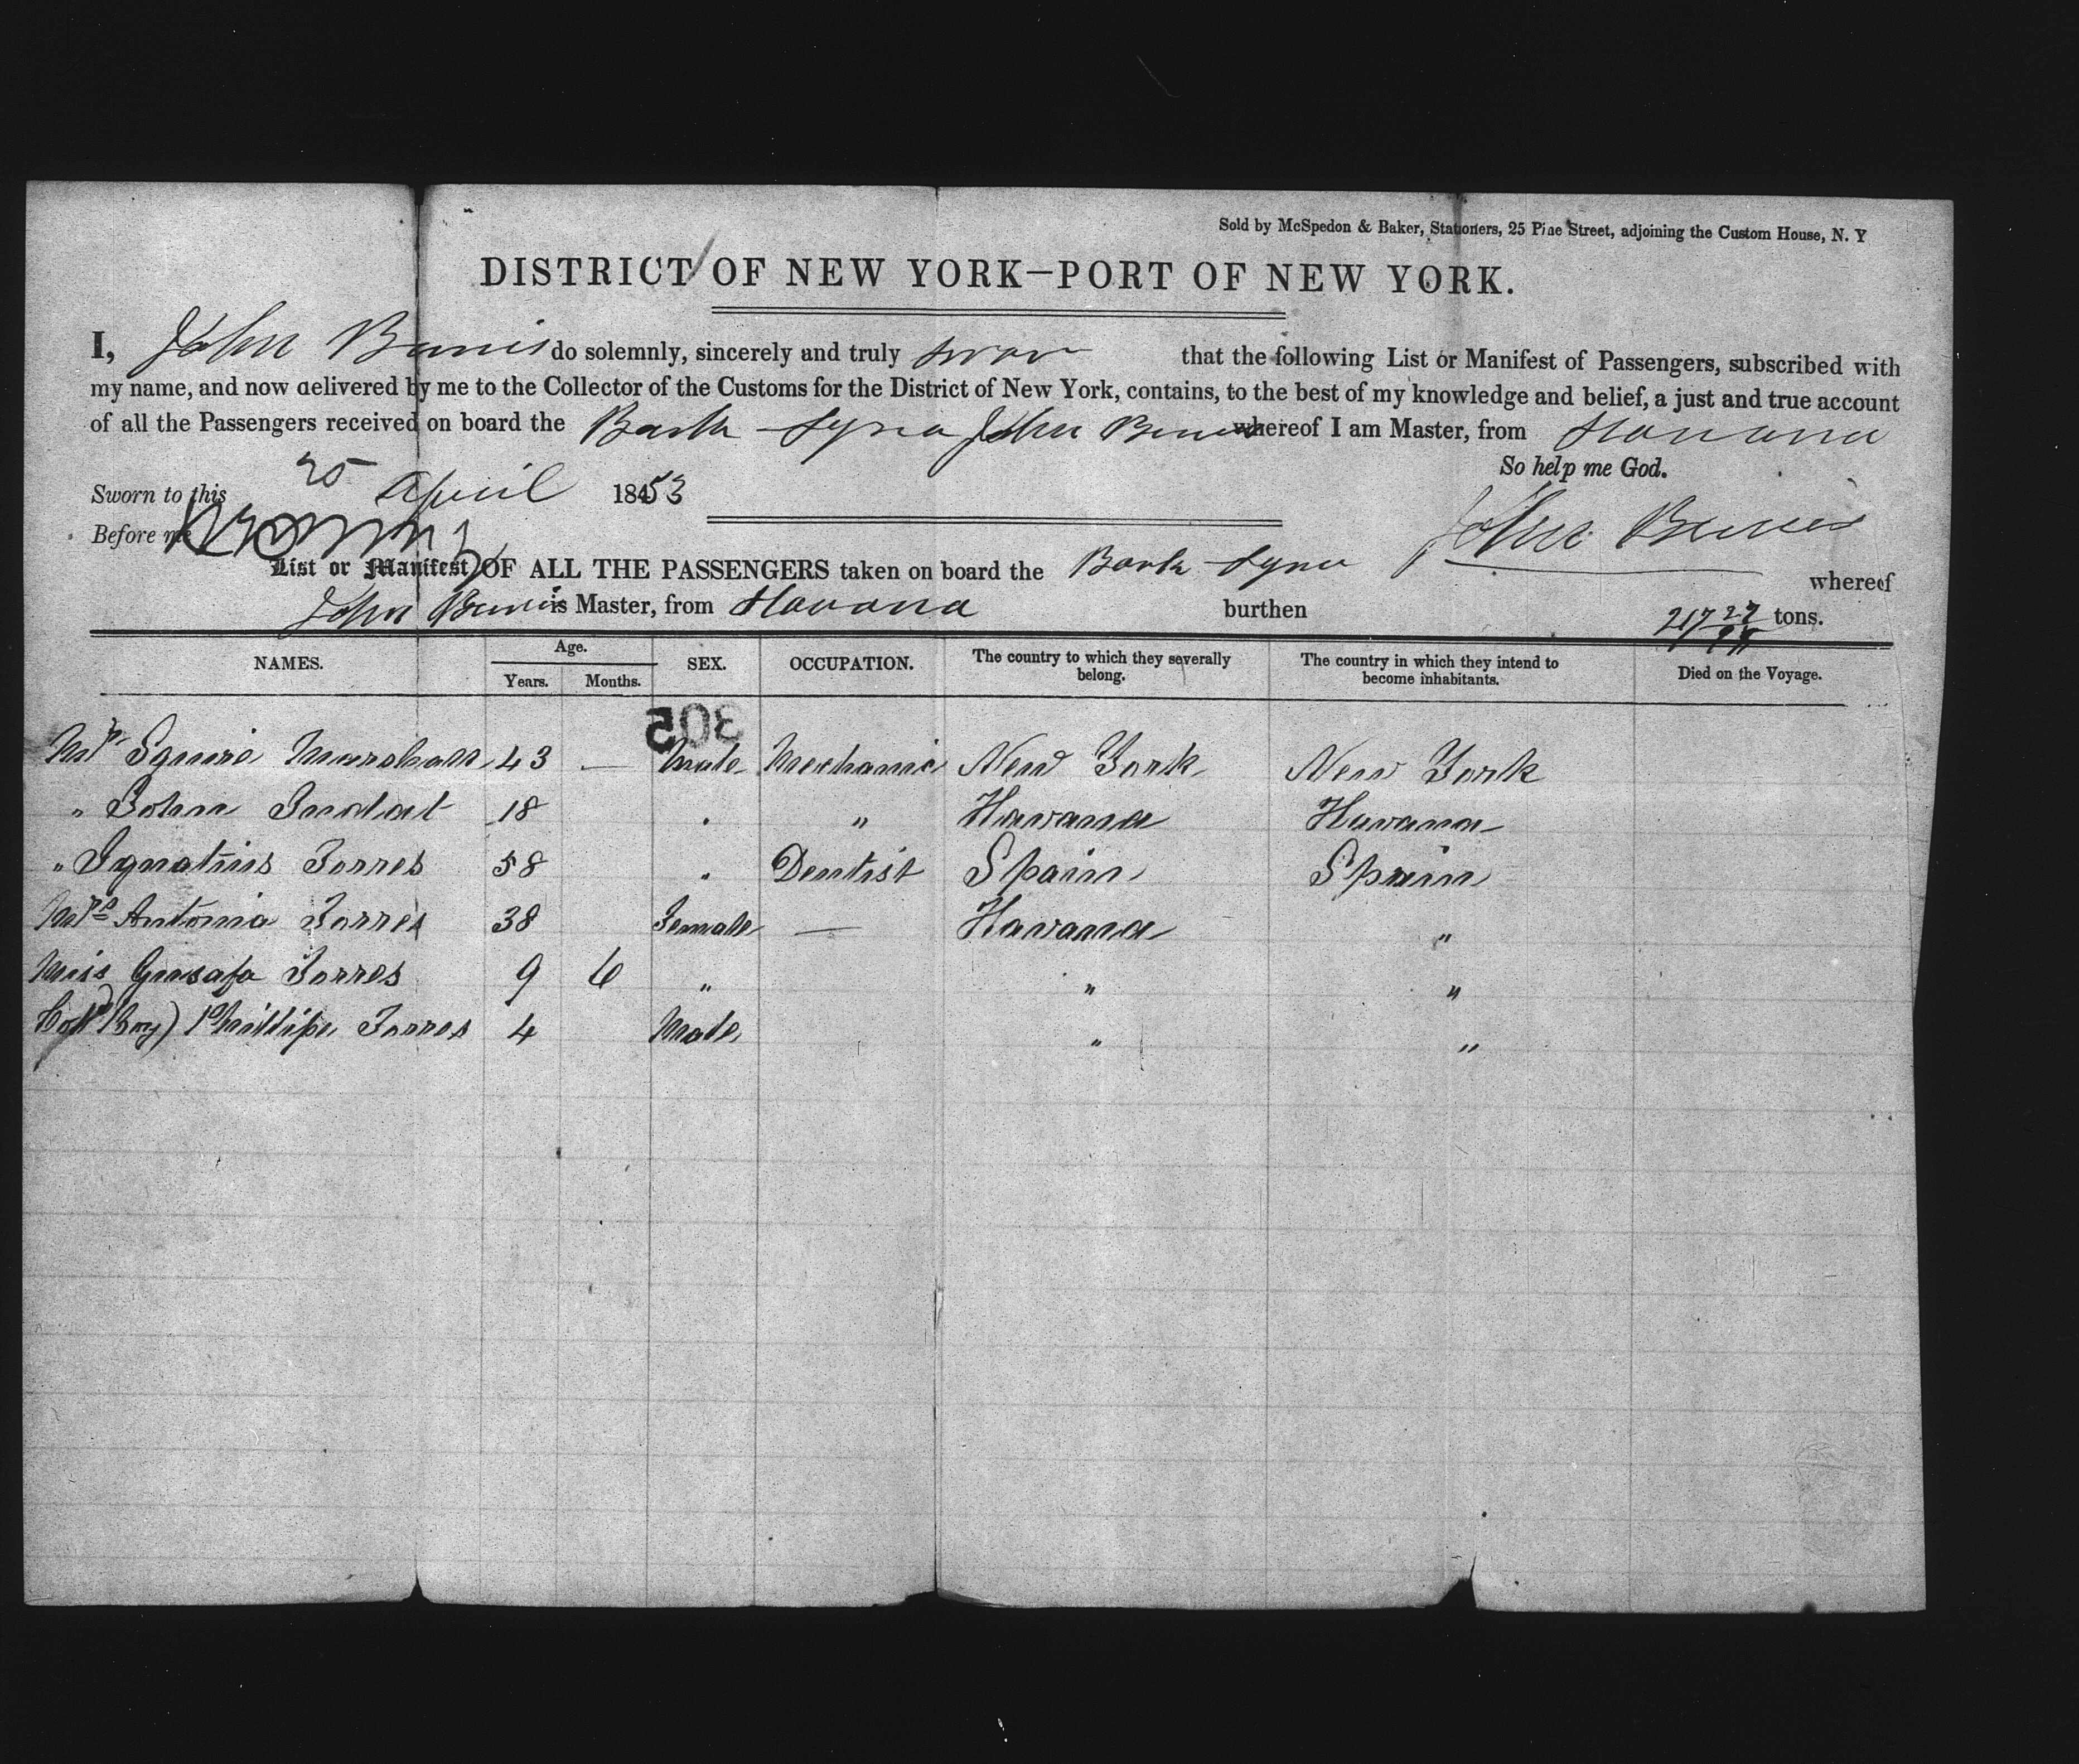 Sold by McSpedon & Baker, Stationers, 25 Pine Street, adjoining the Custom House, N. Y
DISTRICT OF NEW YORK—PORT OF NEW YORK.
I, John do solemnly, sincerely and truly swear that the following List or Manifest of Passengers, subscribed with
my name, and now delivered by me to the Collector of the Customs for the District of New York, contains, to the best of my knowledge and belief, a just and true account
of all the Passengers received on board the Bark John whereof I am Master, from Havana
So help me God.
Sworn to this 25 April 1853
Before me
John
List or Manifest OF ALL THE PASSENGERS taken on board the Bark whereof
John is Master, from Havana burthen 217 tons.
NAMES. Age. Years. Months. SEX. OCCUPATION. The country to which they severally belong. The country in which they intend to become inhabitants. Died on the Voyage.
305
Mr Squire Marshall 43 — Male Mechanic New York New York
" John 18 " " Havana Havana
" Ignatius Torres 58 " Dentist Spain Spain
Mrs Antonia Torres 38 Female — Havana "
Miss Torres 9 6 " " "
(boy) Phillipe Torres 4 Male " "